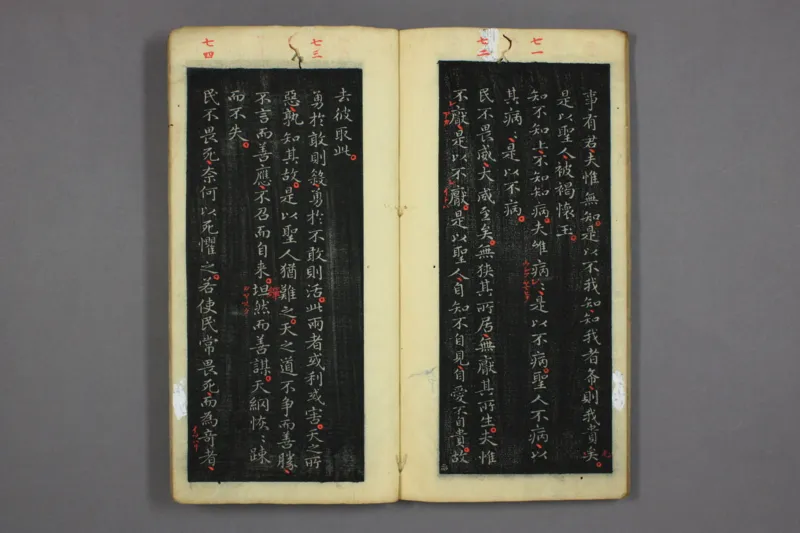 七一
七二
事有君夫惟無知是以不我知知我者希則我貴矣
是以聖人被褐懷玉
知不知上不知知病夫惟病〻是以不病聖人不病以
其病〻是以不病
民不畏威大威至矣無狹其所居無厭其所生夫惟
不厭是以不厭是以聖人自知不自見自愛不自貴故
七三
七四
去彼取此
勇於敢則殺勇於不敢則活此兩者或利或害天之所
惡孰知其故是以聖人猶難之天之道不爭而善勝
不言而善應不召而自来坦然而善謀天網恢〻踈
而不失
民不畏死奈何以死懼之若使民常畏死而為奇者